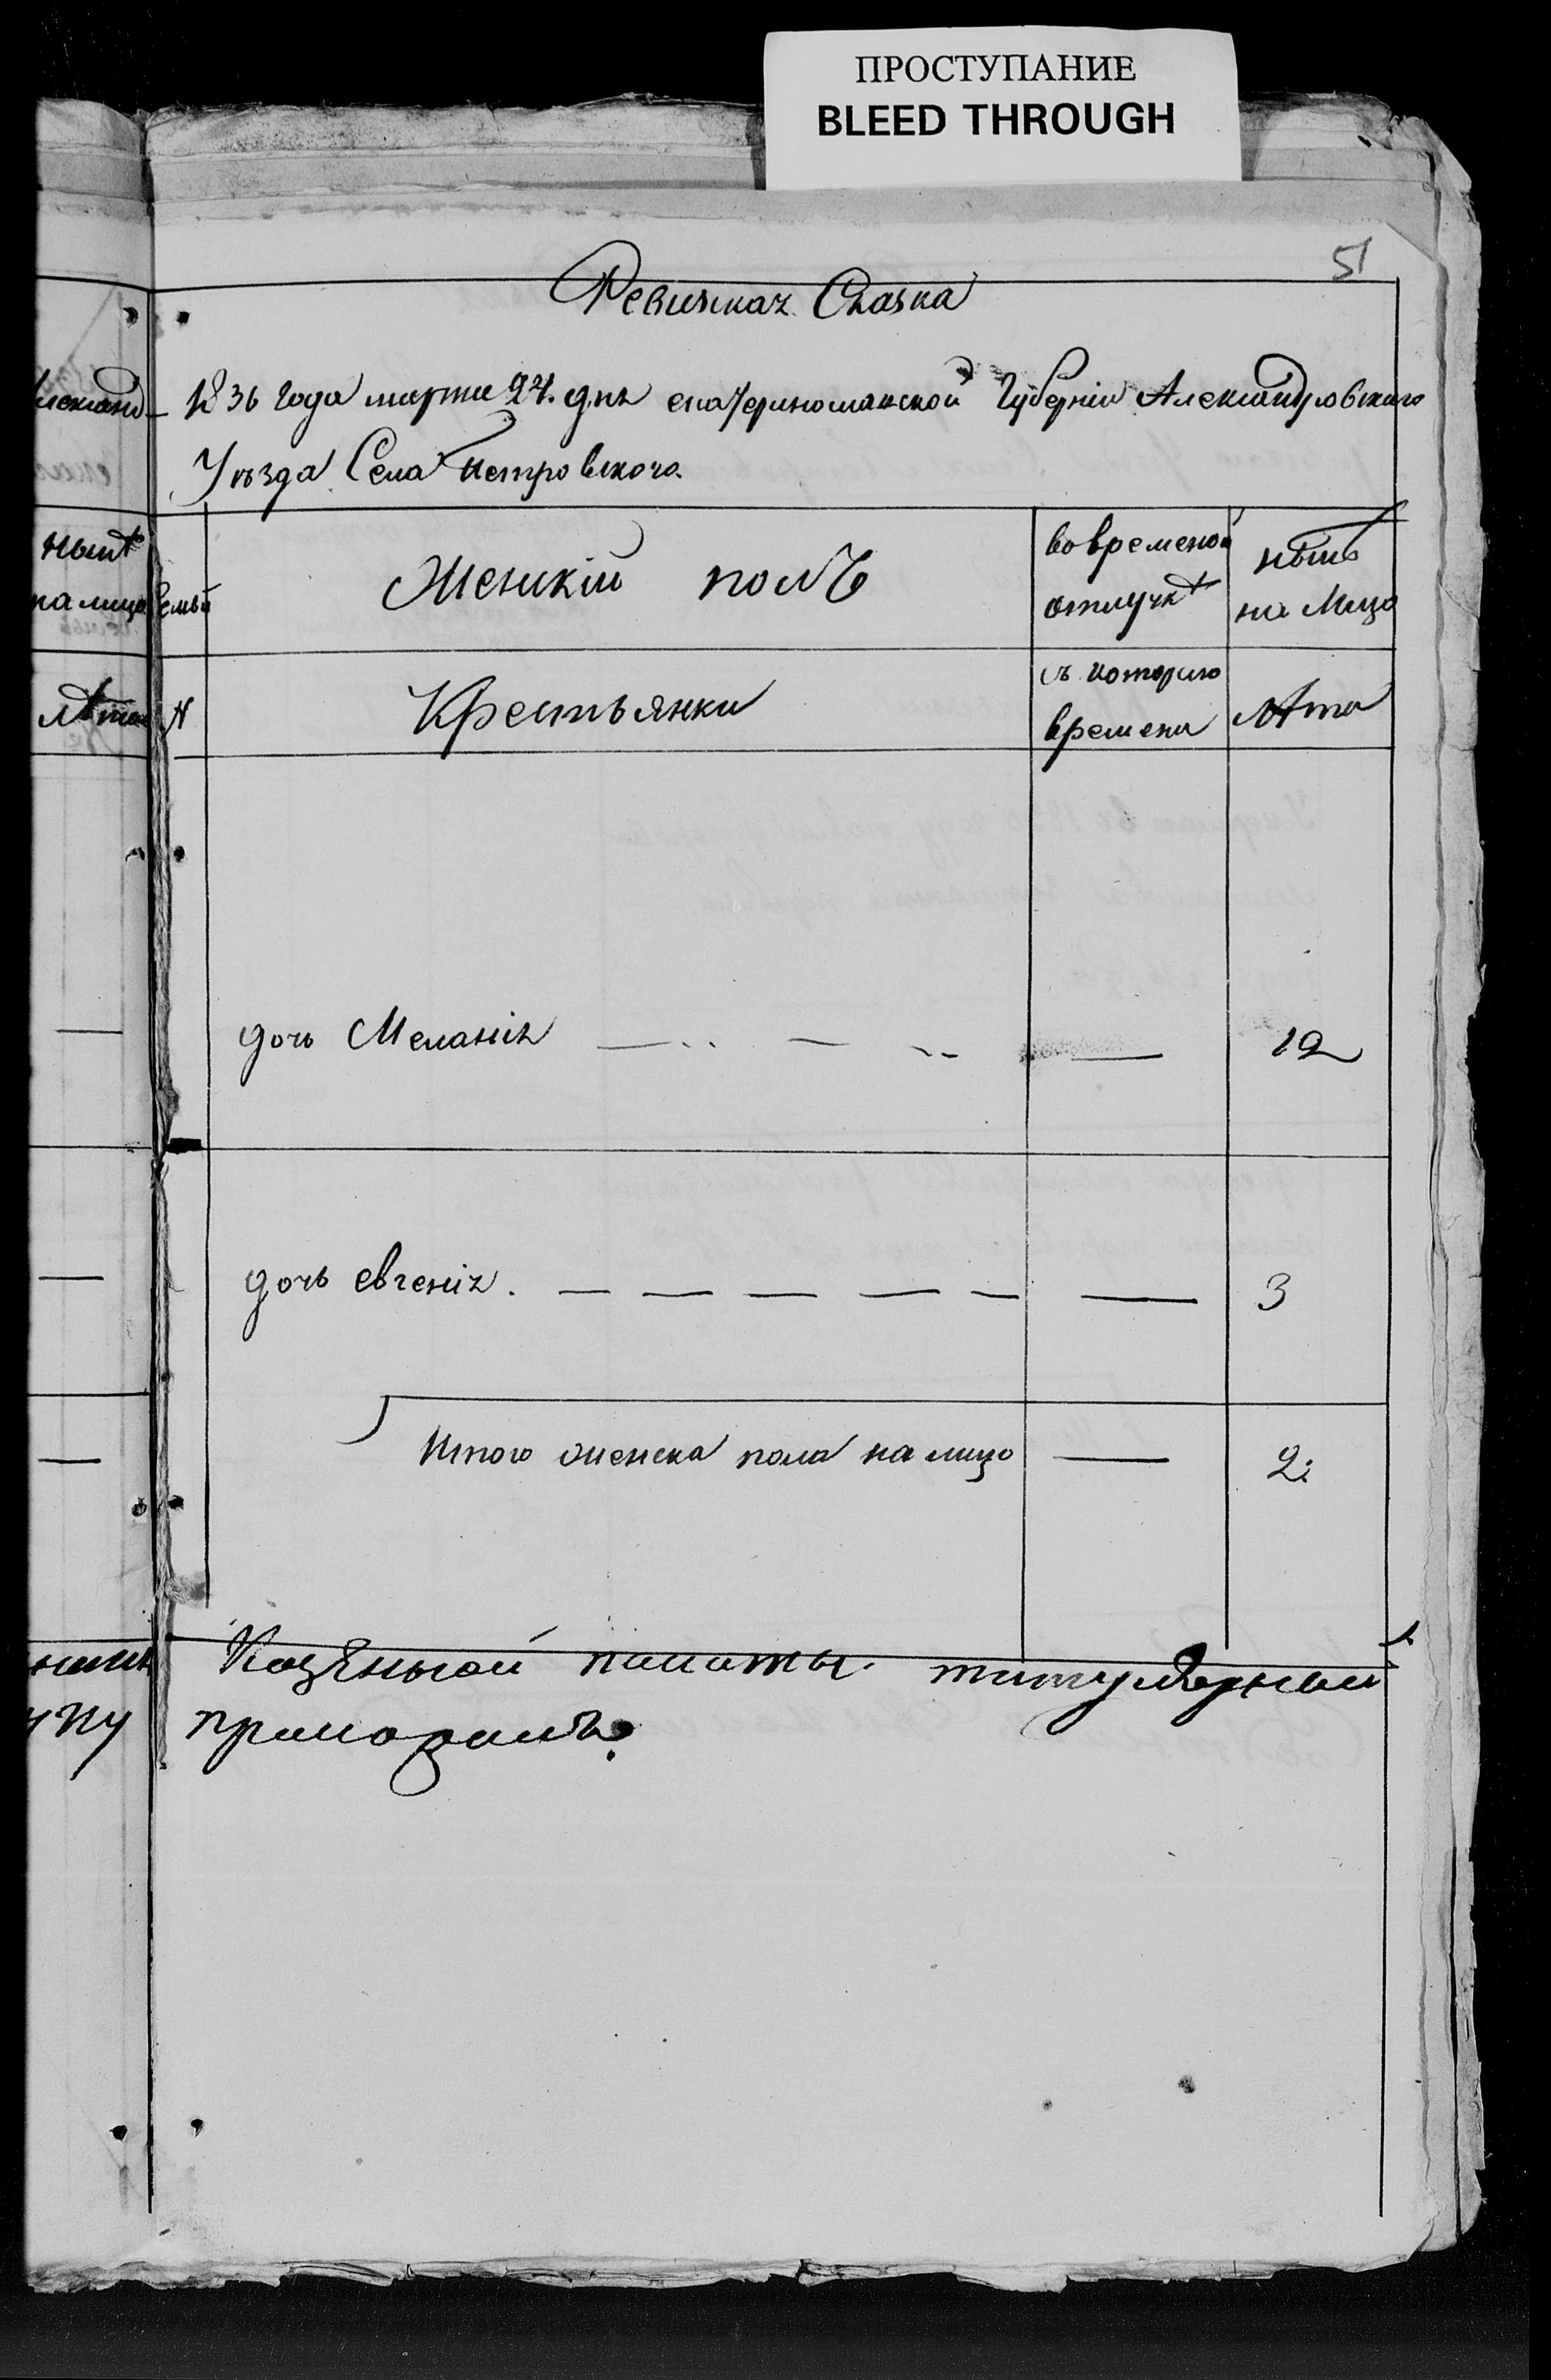 ПРОСТУПАНИЕ
BLEED THROUGH
51
Ревизкая Сказка
1836 года марта 24. дня екатериновлавской Губерніи Александровскаго
Уезда Села Петровского.
Семьи
Женскій полъ
во временой
отлучкѣ
нынѣ
на Лицо
нынѣ
на лицо
лѣта
N
Крестьянки
съ которого
времени
лѣта
дочь Меланія
12
дочь евгенія.
3
Итого женска пола на лицо
2:
Казенной палаты титулярной